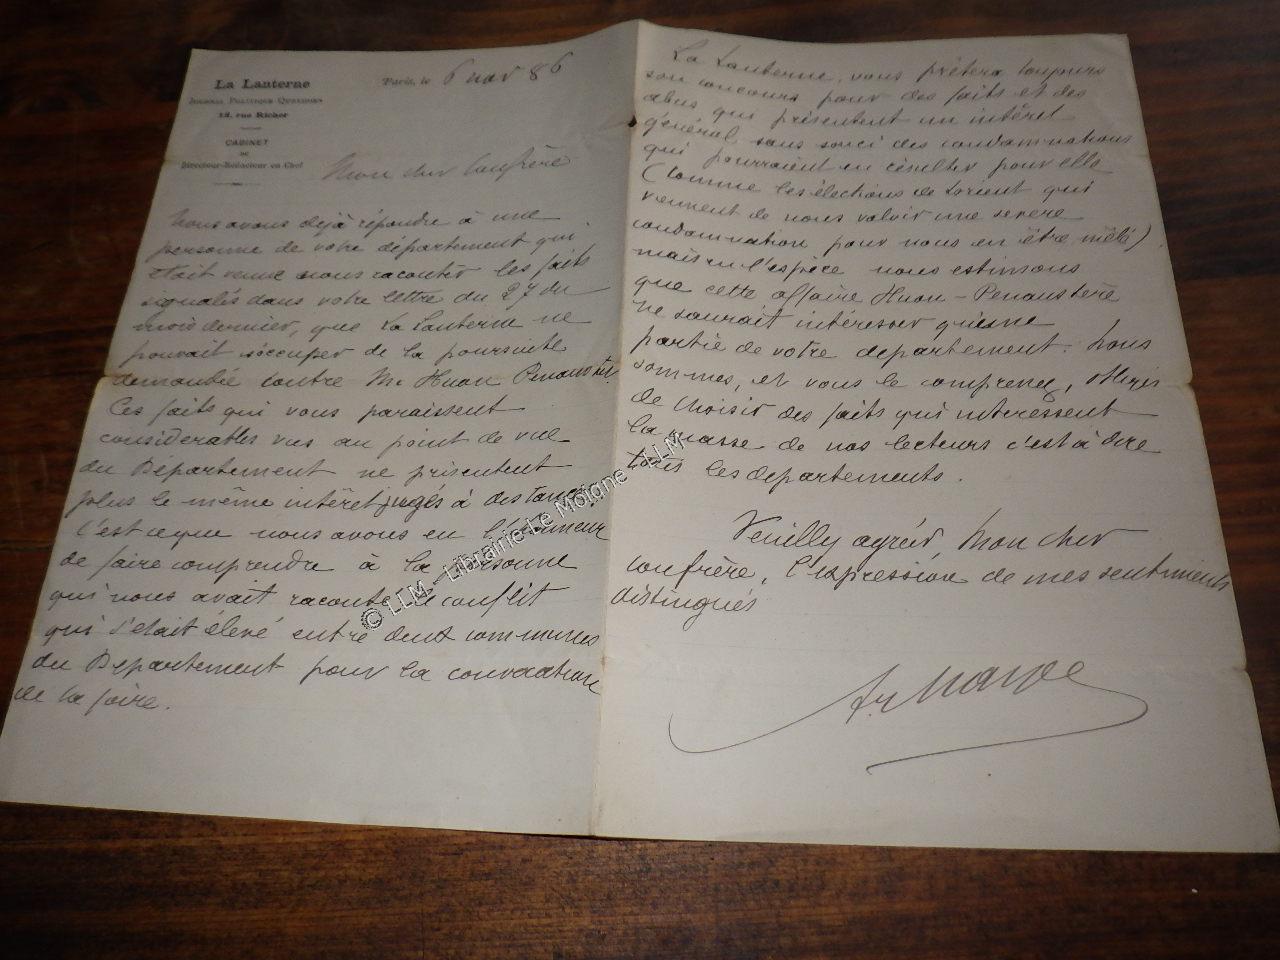 La Lanterne
Journal Politique Quotidien
18, rue Richer
CABINET
DU
Directeur-Rédacteur en Chef
Paris, le 6 nov 86
Mon cher Confrère
Nous avons déjà répondu à une
personne de votre département qui
était venue nous raconter les faits
signalés dans votre lettre du 27 du
mois dernier, que La Lanterne ne
pouvait s'occuper de la poursuite
demandée contre M. Huon Penanster.
Ces faits qui vous paraissent
considerables vus au point de vue
du Département ne présentent
plus le même intérêt jugés à distance.
C'est ce que nous avons eu l'honneur
de faire comprendre à la personne
qui nous avait raconté le conflit
qui s'était élevé entre deux communes
du Département pour la
de la foire.
La Lanterne, vous prêtera toujours
son concours pour des faits et des
abus qui présentent un intérêt
général sans souci des condamnations
qui pourraient en résulter pour elle
(Comme les élections de Lorient qui
viennent de nous valoir une severe
condamnation pour nous en être mêlé)
mais en l'espèce nous estimons
que cette affaire Huon-Penanster
ne saurait intéresser qu'une
partie de votre departement. Nous
sommes, et vous le comprenez, obligés
de choisir des faits qui intéressent
la masse de nos lecteurs c'est à dire
tous les departements.
Veuillez agréer, Mon cher
confrère, l'expression de mes sentiments
distingués
© LLM - Librairie Le Moigne - LLM